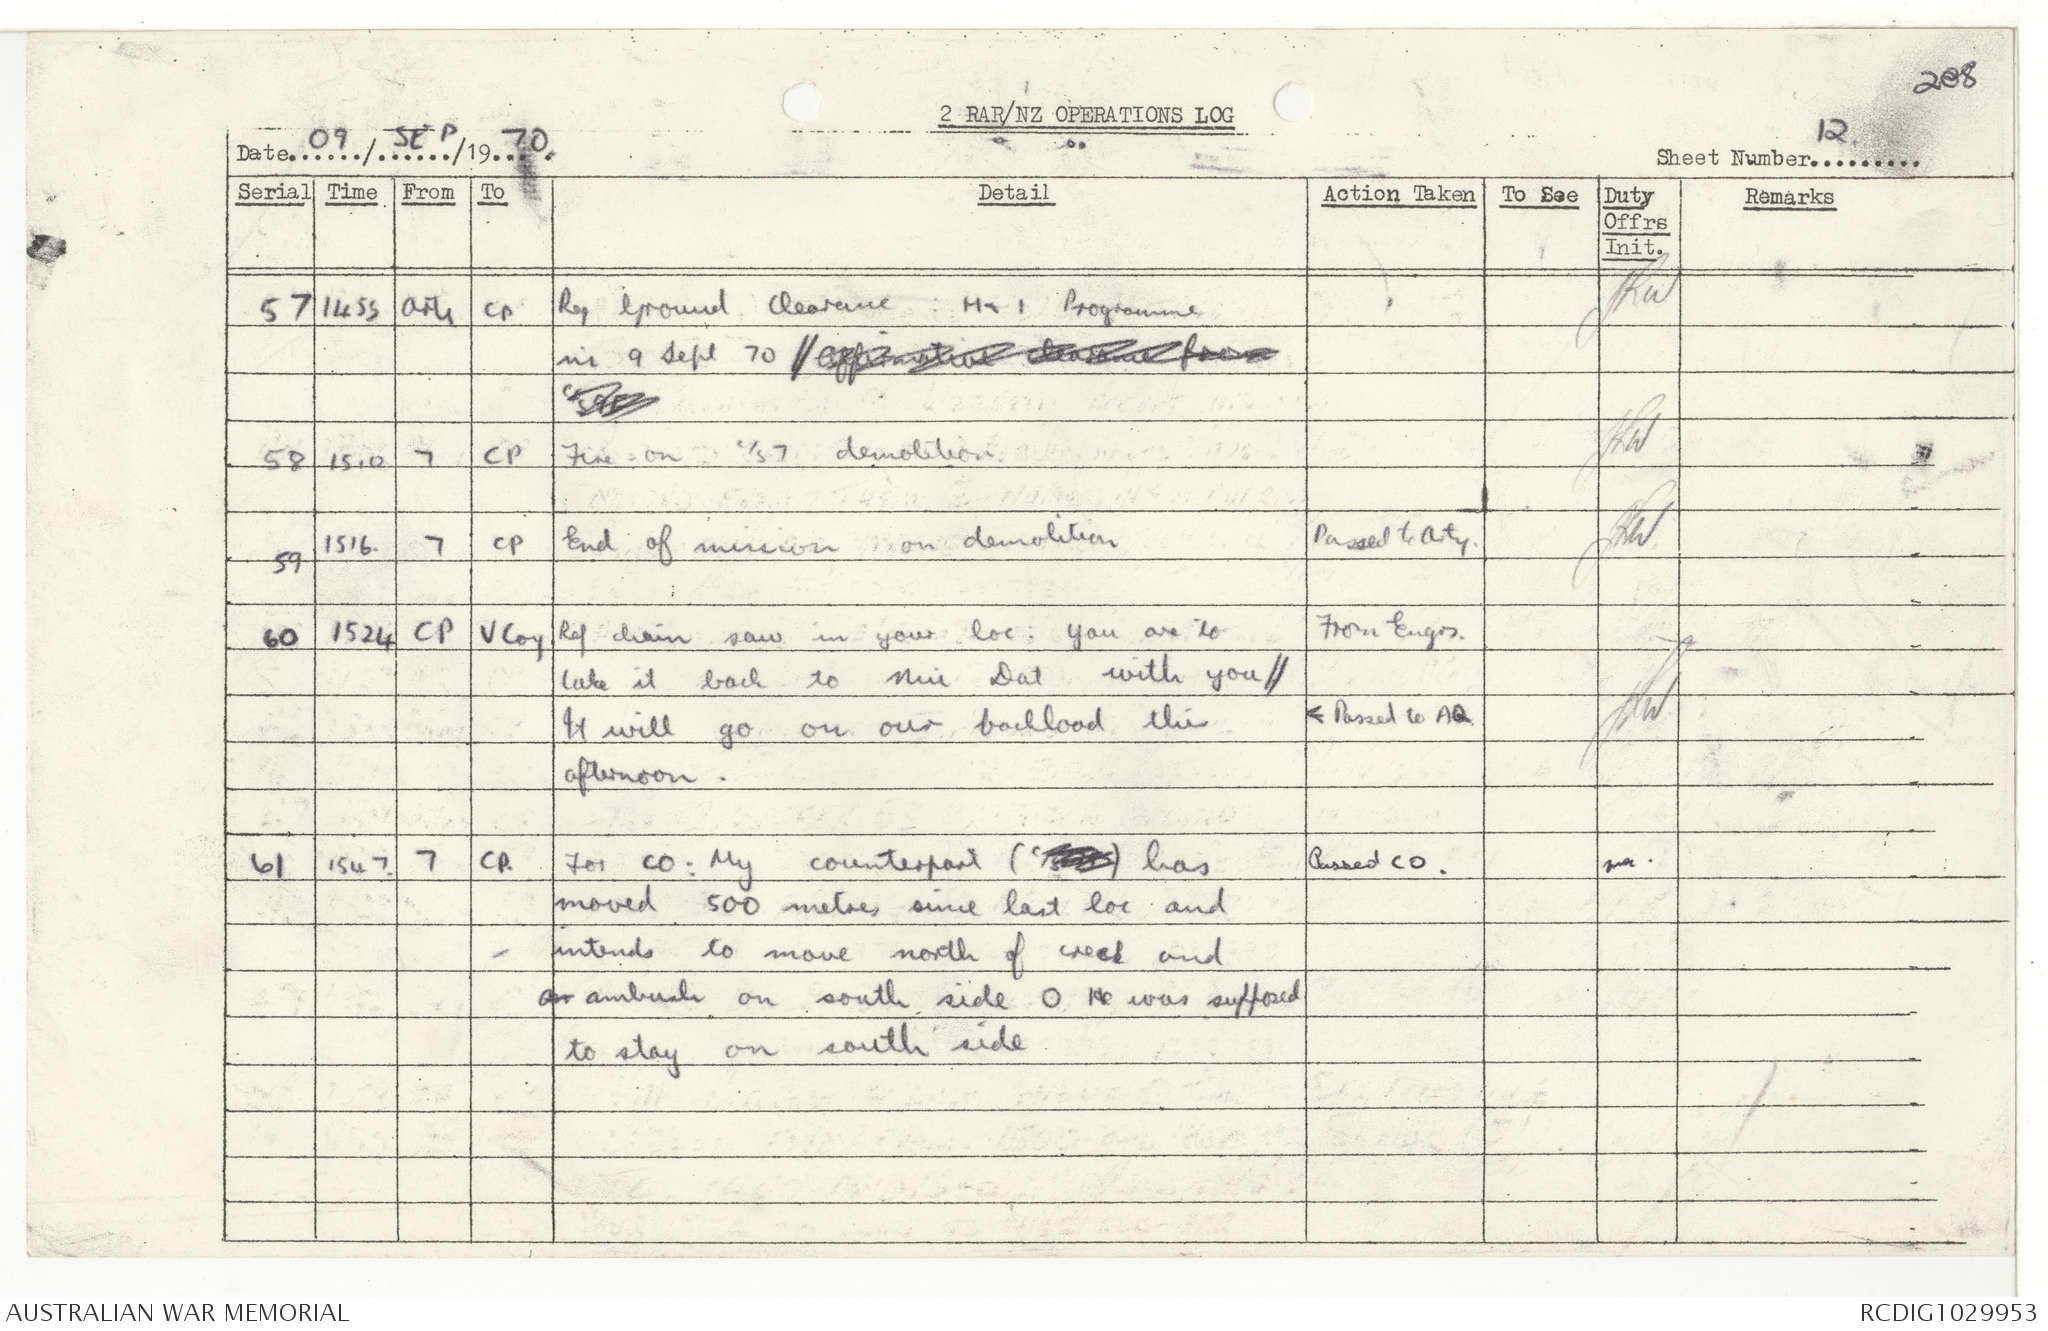 208
2 RAR/NZ OPERATIONS LOG
Date 09/SEP/1970.
Sheet Number 12.
Serial Time From To Detail Action Taken To See Duty Offrs Init. Remarks
57 1455 Arty CP Req Ground Clearance : H & I Programme
9 Sept 70 //
58 1510 7 CP Fire on c/s 7 demolition.
59 1516. 7 CP End of mission on demolition Passed to Arty.
60 1524 CP V Coy Ref chain saw in your loc : You are to From Engrs.
take it back to Nui Dat with you//
It will go on our backload this ← Passed to AQ
afternoon .
61 1547. 7 CP. For CO : My counterpart ( ) has Passed CO .
moved 500 metres since last loc and
intends to move north of creek and
ambush on south side O He was supposed
to stay on south side
AUSTRALIAN WAR MEMORIAL
RCDIG1029953